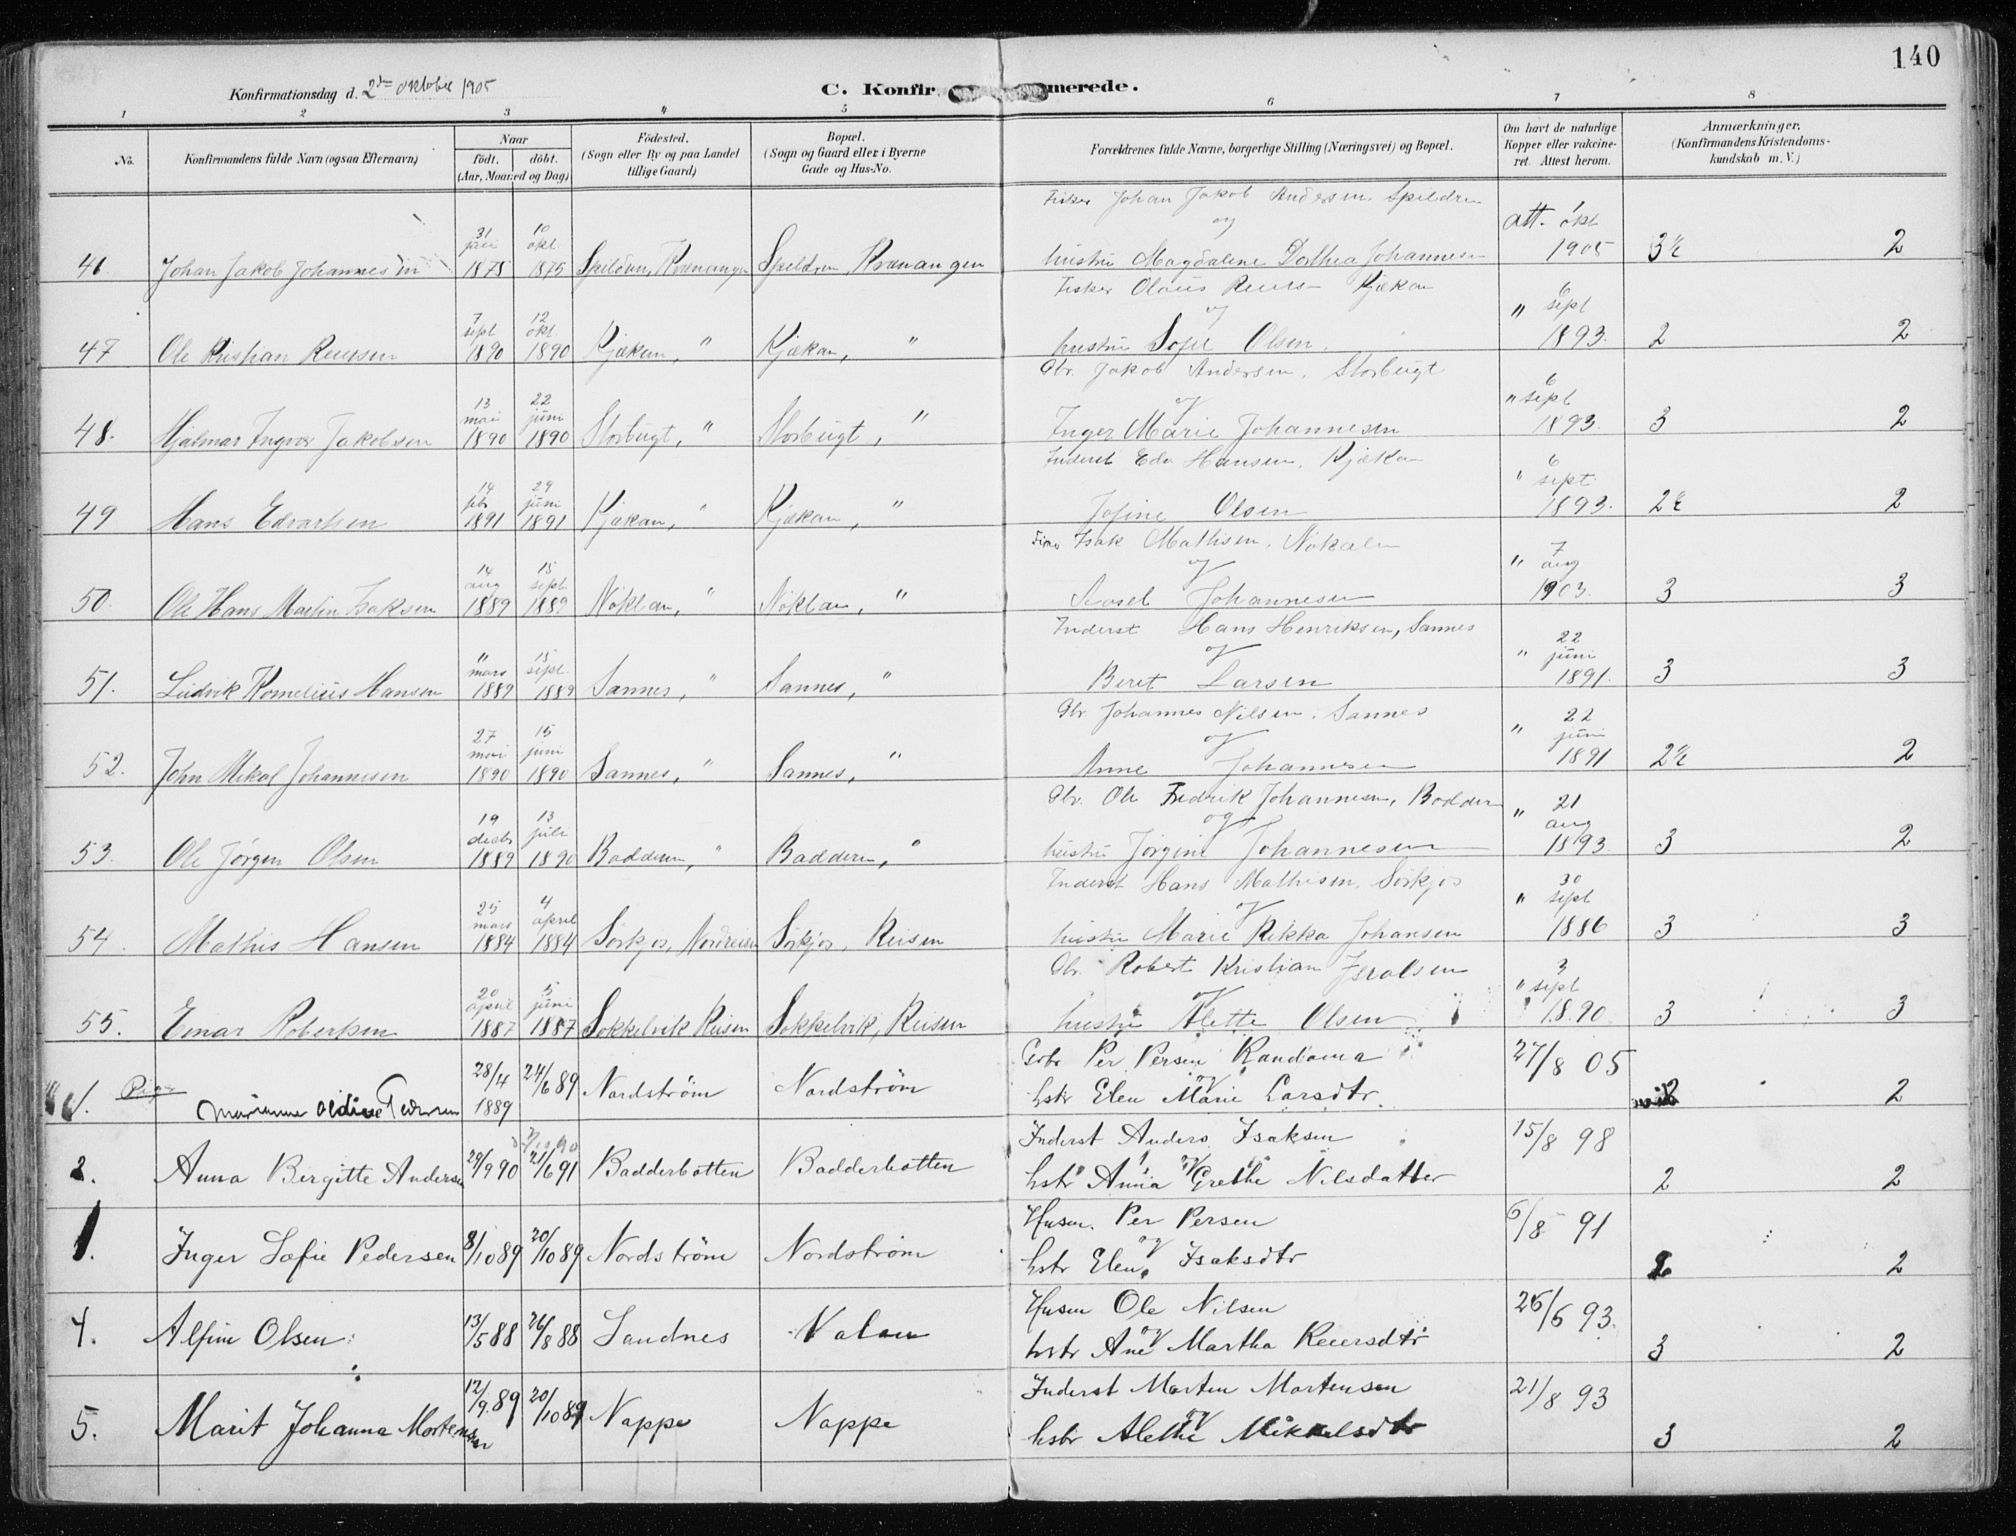 140
Konfirmationsdag d. 2den oktober 1905
C. Konfir merede.
1 2 3 4 5 6 7 8
No. Konfirmandens fulde Navn (ogsaa Efternavn) Naar födt. döbt. (Aar, Maaned og Dag) Födested. (Sogn eller By og paa Landet tillige Gaard) Bopæl. (Sogn og Gaard eller i Byerne Gade og Hus-No. Forældrenes fulde Navne, borgerlige Stilling (Næringsvei) og Bopæl. Om havt de naturlige Kopper eller vakcineret. Attest herom. Anmærkninger. (Konfirmandens Kristendomskundskab m. V.)
Fisker Johan Jakob Andersen Spildren
31 10 og att. 1 okt
46. Johan Jakob Johannesen 1875 okt. 1875 Spildren, Kvænangen Spildren, Kvænangen hustru Magdalene Dorthea Johannesen 1905 3½ 2
Fisker Olaus Kjækan
7 sept 12 okt. og " 6 sept
47 Ole Kristian Reiersen 1890 1890 Kjækan, " Kjækan, " hustru Sofie Olsen 1893. 2 2
Gbr. Jakob Andersen. Storbugt
13 mai 22 juni og " 6 sept
48. Hjalmar Ingvar Jakobsen 1890 1890 Storbugt, " Storbugt, " Inger Marie Johannesen 1893. 3 2
Inderst Edv Hansen, Kjækan
14 febr 29 juni " 6 sept.
49 Hans Edvartsen 1891 1891 Kjækan, " Kjækan, " Jofine Olsen 1893. 2½ 2
Isak Mathisen,
14 aug 15 sept. og " 7 aug
50. Ole Hans Martin Isaksen 1889 1889 Nöklan, " Nöklan, " Johannesen 1903. 3 3
Inderst Hans Henriksen, Sannes
11 mars 15 sept. og " 22 juni
51. Ludvik Kornelius Hansen 1889 1889 Sannes, " Sannes, " Beret Larsen 1891. 3 3
Gbr. Johannes Nilsen. Sannes
27 mai 15 juni og " 22 juni
52. John Mikal Johannesen 1890 1890 Sannes, " Sannes, " Anne Johannesen 1891 2½ 2
Gbr. Ole Fredrik Johannesen, Badderen
19 decbr 13 juli og " 21 aug
53. Ole Jörgen Olsen 1889 1890 Badderen, " Badderen, " hustru Jörgine Johannesen 1893. 3 2
Inderst Hans Mathisen, Sörkjos
25 mars 4 april og " 30 sept
54. Mathis Hansen 1884 1884 Sörkjos, Nordreisen Sörkjos, Reisen hustru Marie Rikka Johansen 1886 3 3
Gbr. Robert Kristian Israelsen
20 april 5 juni og " 3 sept
55. Einar Robertsen 1887 1887 Sokkelvik Reisen Sokkelvik, Reisen hustru Alette Olsen 1890 3 3
Gbr Per Persen 27/8 05
1. Pige Marianne Pedersen 28/4 1889 24/6 89 Nordström Nordström og hstr Elen Marie Larsdtr. 2 2
Inderst Anders Isaksen 15/8 98
2. Anna Bergitte Andersen 29/9 90 21/6 91 Badderbotten Badderbotten og hstr Anna Grethe Nilsdatter 2 2
Husm. Per Persen 6/8 91
Inger Sofie Pedersen 8/10 89 20/10 89 Nordström Nordström og hstr Elen Isaksdtr 2 2
Husm Ole Nilsen 26/6 93.
4. Alfine Olsen 13/5 88 26/8 88 Sandnes Valan og hstr Ane Martha Reiersdtr 3 2
Inderst Morten Mortensen 21/8 93
5. Marit Johanna Mortensen 12/9. 89 20/10 89 Nappe Nappe og hstr Alethe Mikkelsdtr 3 2